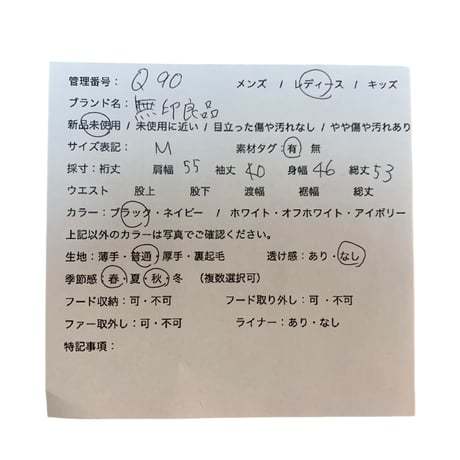 管理番号： Q 90 メンズ / レディース / キッズ
ブランド名： 無印良品
新品未使用 / 未使用に近い / 目立った傷や汚れなし / やや傷や汚れあり
サイズ表記： M 素材タグ：有 無
採寸：裄丈 肩幅 55 袖丈 40 身幅 46 総丈 53
ウエスト 股上 股下 渡幅 裾幅 総丈
カラー：ブラック・ネイビー / ホワイト・オフホワイト・アイボリー
上記以外のカラーは写真でご確認ください。
生地：薄手・普通・厚手・裏起毛 透け感：あり・なし
季節感：春・夏・秋・冬 （複数選択可）
フード収納：可・不可 フード取り外し：可・不可
ファー取外し：可・不可 ライナー：あり・なし
特記事項：